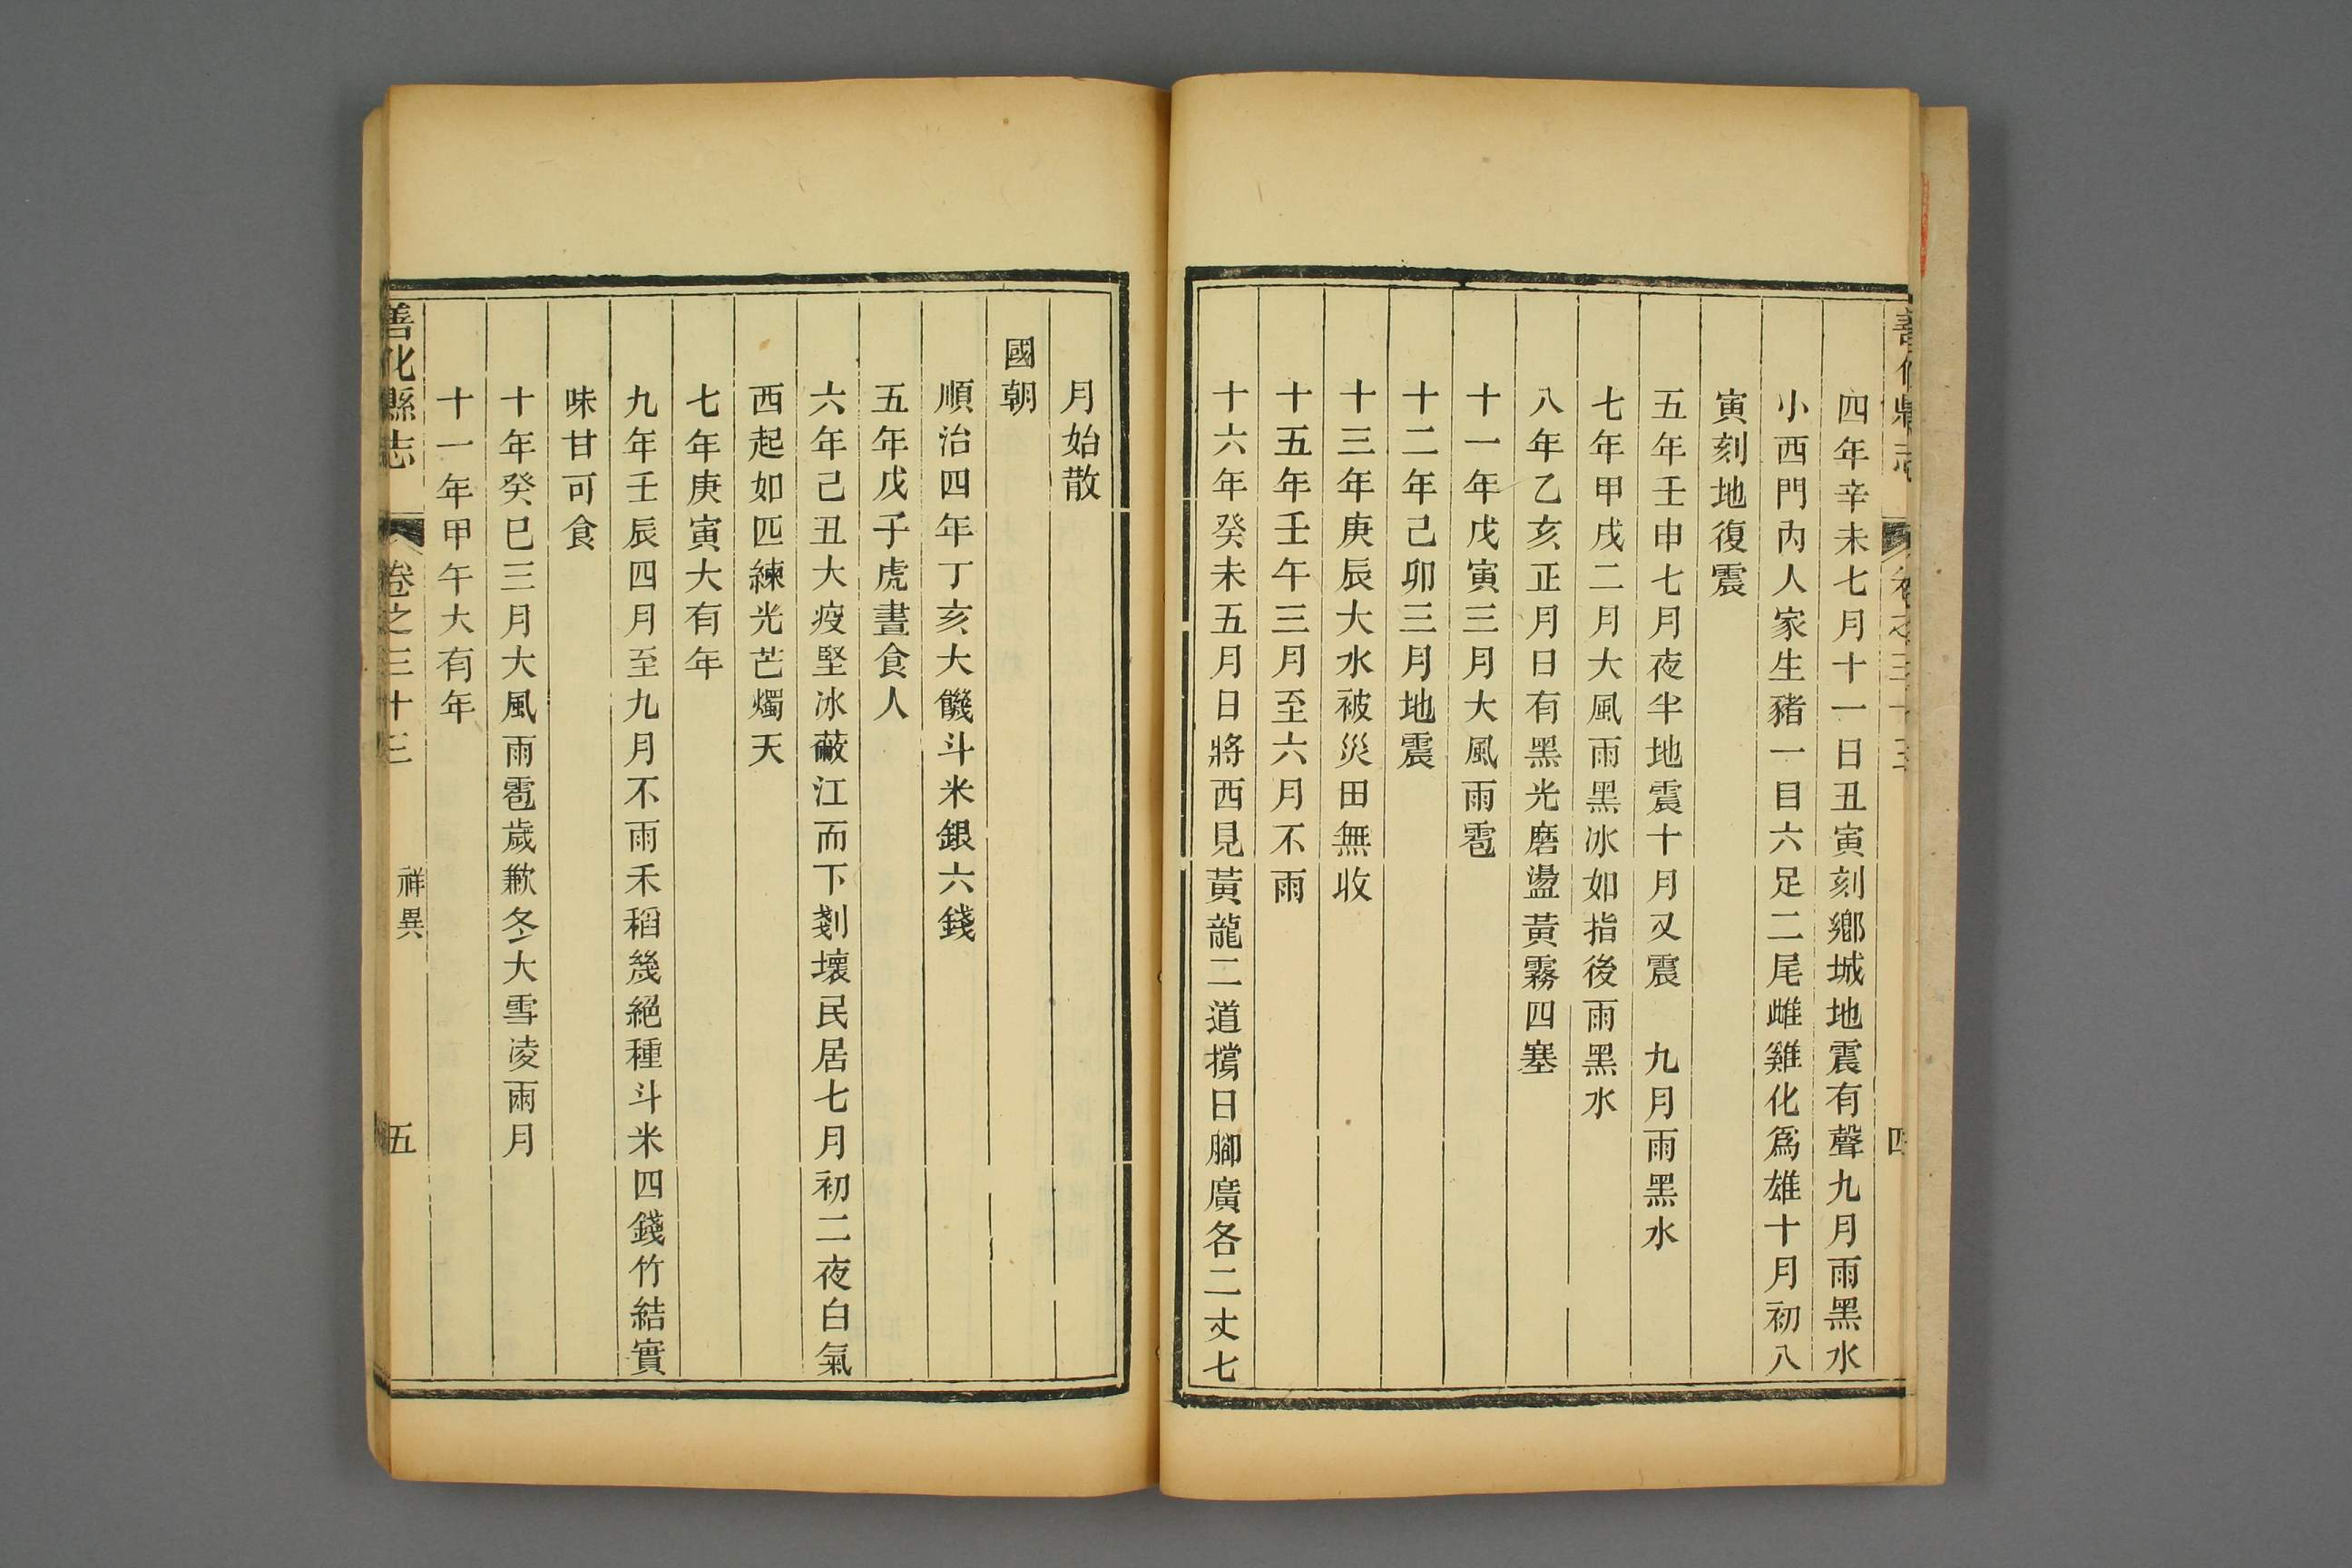 善化縣志
卷之三十三
四
四年辛未七月十一日丑寅刻鄉城地震有聲九月雨黑水
小西門內人家生豬一目六足二尾雌雞化爲雄十月初八
寅刻地復震
五年壬申七月夜半地震十月又震　九月雨黑水
七年甲戌二月大風雨黑冰如指後雨黑水
八年乙亥正月日有黑光磨盪黃霧四塞
十一年戊寅三月大風雨雹
十二年己卯三月地震
十三年庚辰大水被災田無收
十五年壬午三月至六月不雨
十六年癸未五月日將西見黃龍二道撐日腳廣各二丈七
月始散
國朝
順治四年丁亥大饑斗米銀六錢
五年戊子虎晝食人
六年己丑大疫堅冰蔽江而下剗壞民居七月初二夜白氣
西起如匹練光芒燭天
七年庚寅大有年
九年壬辰四月至九月不雨禾稻幾絕種斗米四錢竹結實
味甘可食
十年癸巳三月大風雨雹歲歉冬大雪凌兩月
十一年甲午大有年
善化縣志
卷之三十三
祥異
五